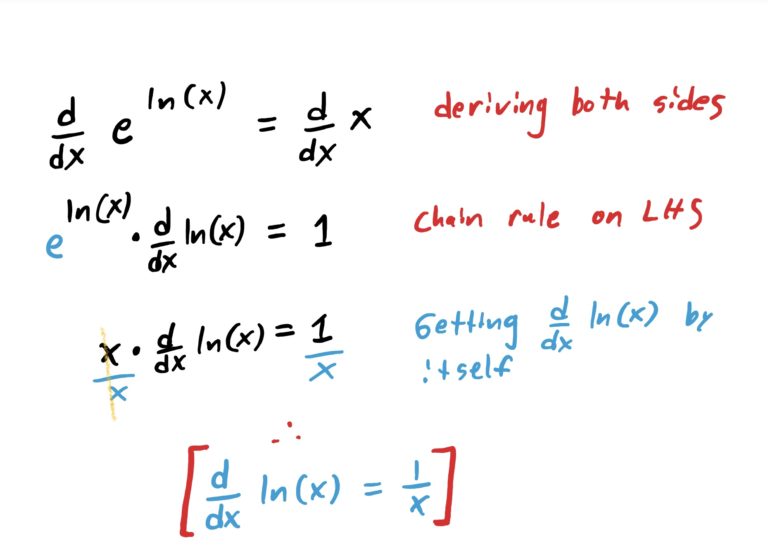 d/dx e^ln(x) = d/dx x deriving both sides
e^ln(x) · d/dx ln(x) = 1 chain rule on LHS
x/x · d/dx ln(x) = 1/x Getting d/dx ln(x) by
itself
∴
[d/dx ln(x) = 1/x]